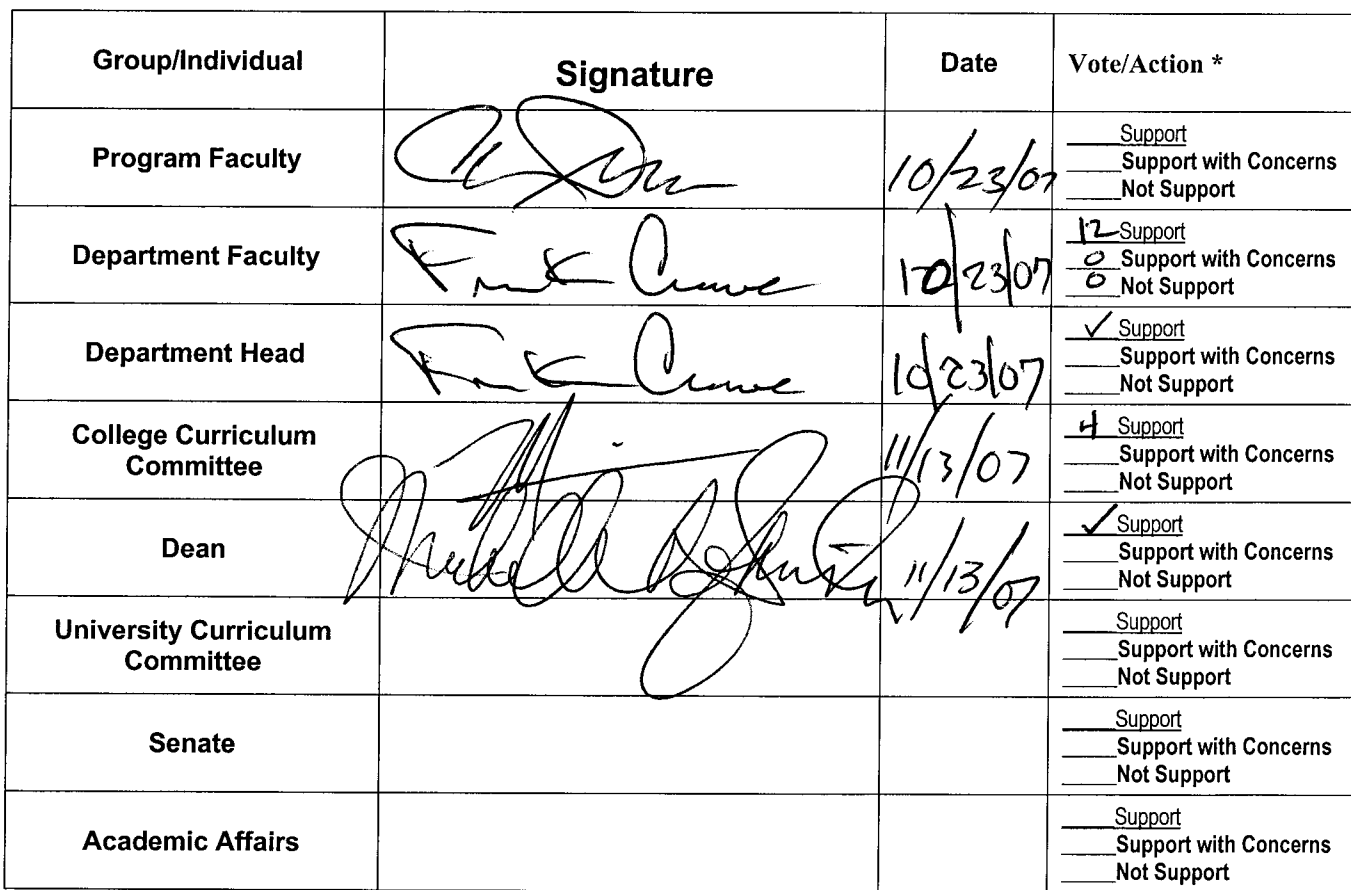 Group/Individual Signature Date Vote/Action *
Program Faculty 10/23/07
___Support
___Support with Concerns
___Not Support
Department Faculty 10/23/07
12 Support
0 Support with Concerns
0 Not Support
Department Head 10/23/07
✓ Support
___Support with Concerns
___Not Support
College Curriculum
Committee 11/13/07
4 Support
___Support with Concerns
___Not Support
Dean 11/13/07
✓ Support
___Support with Concerns
___Not Support
University Curriculum
Committee
___Support
___Support with Concerns
___Not Support
Senate
___Support
___Support with Concerns
___Not Support
Academic Affairs
___Support
___Support with Concerns
___Not Support